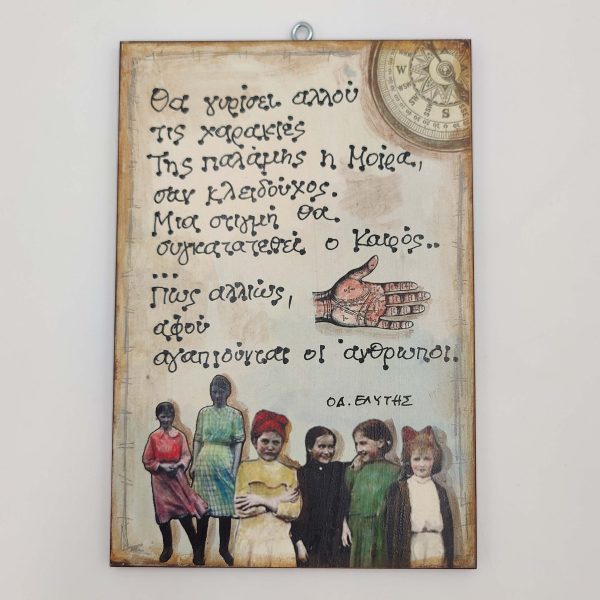 Θα γυρίσει αλλού
τις χαρακιές
Της παλάμης η Μοίρα,
σαν κλειδούχος.
Μια στιγμή θα
συγκατατεθεί ο Καιρός..
...
Πώς αλλιώς,
αφού
αγαπιούνται οι άνθρωποι.
ΟΔ. ΕΛΥΤΗΣ
W
S